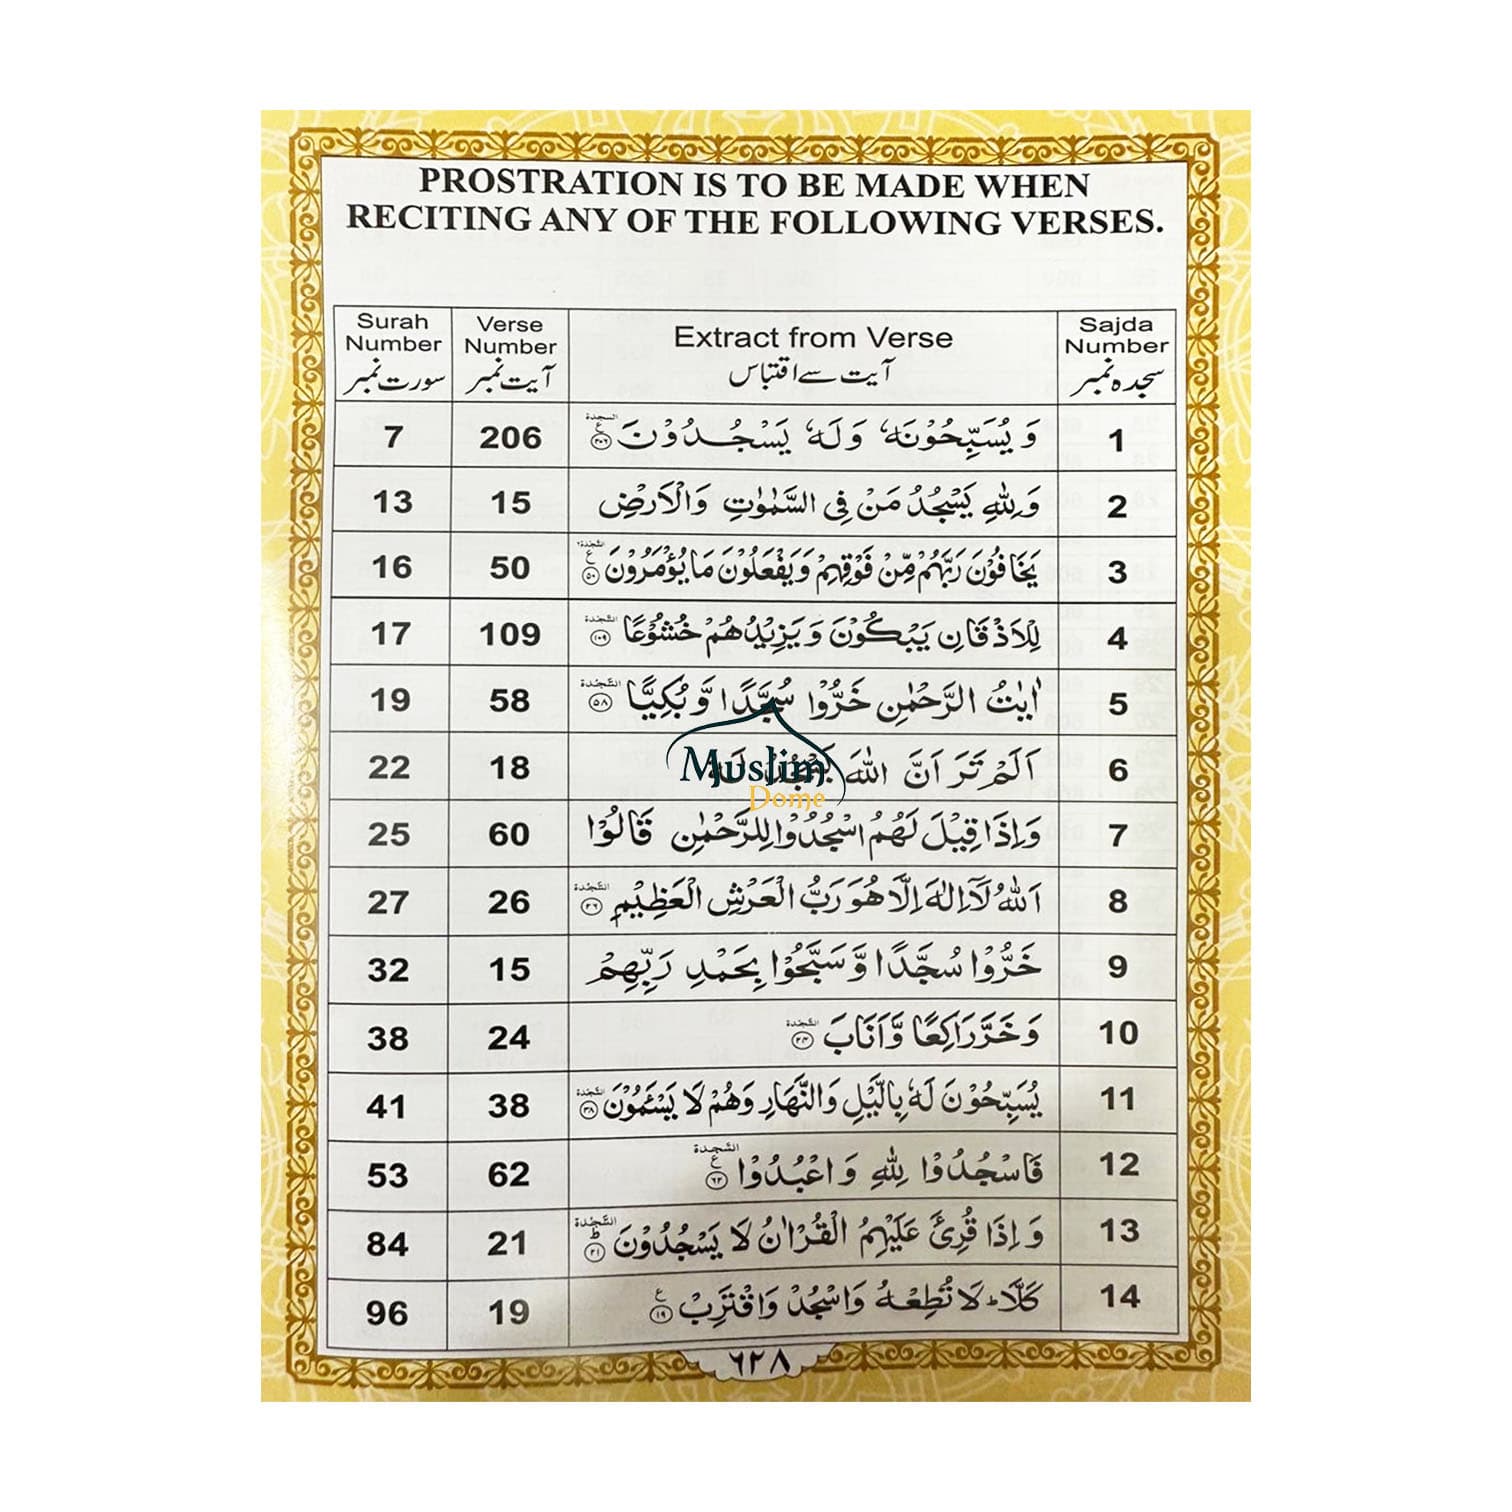 PROSTRATION IS TO BE MADE WHEN
RECITING ANY OF THE FOLLOWING VERSES.
Surah Number سورت نمبر | Verse Number آیت نمبر | Extract from Verse آیت سے اقتباس | Sajda Number سجدہ نمبر
7 | 206 | وَيُسَبِّحُوْنَهٗ وَلَهٗ يَسْجُدُوْنَ ۩ ع ﴿۲۰۶﴾ السجدة | 1
13 | 15 | وَلِلّٰهِ يَسْجُدُ مَنْ فِى السَّمٰوٰتِ وَالْاَرْضِ | 2
16 | 50 | يَخَافُوْنَ رَبَّهُمْ مِّنْ فَوْقِهِمْ وَيَفْعَلُوْنَ مَا يُؤْمَرُوْنَ ع ﴿۵۰﴾ السَّجْدَة | 3
17 | 109 | لِلْاَذْقَانِ يَبْكُوْنَ وَيَزِيْدُهُمْ خُشُوْعًا ﴿۱۰۹﴾ السَّجْدَة | 4
19 | 58 | اٰيٰتُ الرَّحْمٰنِ خَرُّوْا سُجَّدًا وَّبُكِيًّا ﴿۵۸﴾ السَّجْدَة | 5
22 | 18 | اَلَمْ تَرَ اَنَّ اللّٰهَ يَسْجُدُ لَهٗ | 6
Muslim
Dome
25 | 60 | وَاِذَا قِيْلَ لَهُمُ اسْجُدُوْا لِلرَّحْمٰنِ قَالُوْا | 7
27 | 26 | اَللّٰهُ لَاۤ اِلٰهَ اِلَّا هُوَ رَبُّ الْعَرْشِ الْعَظِيْمِ ﴿۲۶﴾ السَّجْدَة | 8
32 | 15 | خَرُّوْا سُجَّدًا وَّسَبَّحُوْا بِحَمْدِ رَبِّهِمْ | 9
38 | 24 | وَخَرَّ رَاكِعًا وَّاَنَابَ ﴿۲۴﴾ السَّجْدَة | 10
41 | 38 | يُسَبِّحُوْنَ لَهٗ بِالَّيْلِ وَالنَّهَارِ وَهُمْ لَا يَسْـَٔمُوْنَ ﴿۳۸﴾ السَّجْدَة | 11
53 | 62 | فَاسْجُدُوْا لِلّٰهِ وَاعْبُدُوْا ع ﴿۶۲﴾ السَّجْدَة | 12
84 | 21 | وَاِذَا قُرِئَ عَلَيْهِمُ الْقُرْاٰنُ لَا يَسْجُدُوْنَ ط ﴿۲۱﴾ السَّجْدَة | 13
96 | 19 | كَلَّا ؕ لَا تُطِعْهُ وَاسْجُدْ وَاقْتَرِبْ ع ﴿۱۹﴾ | 14
٦٢٨